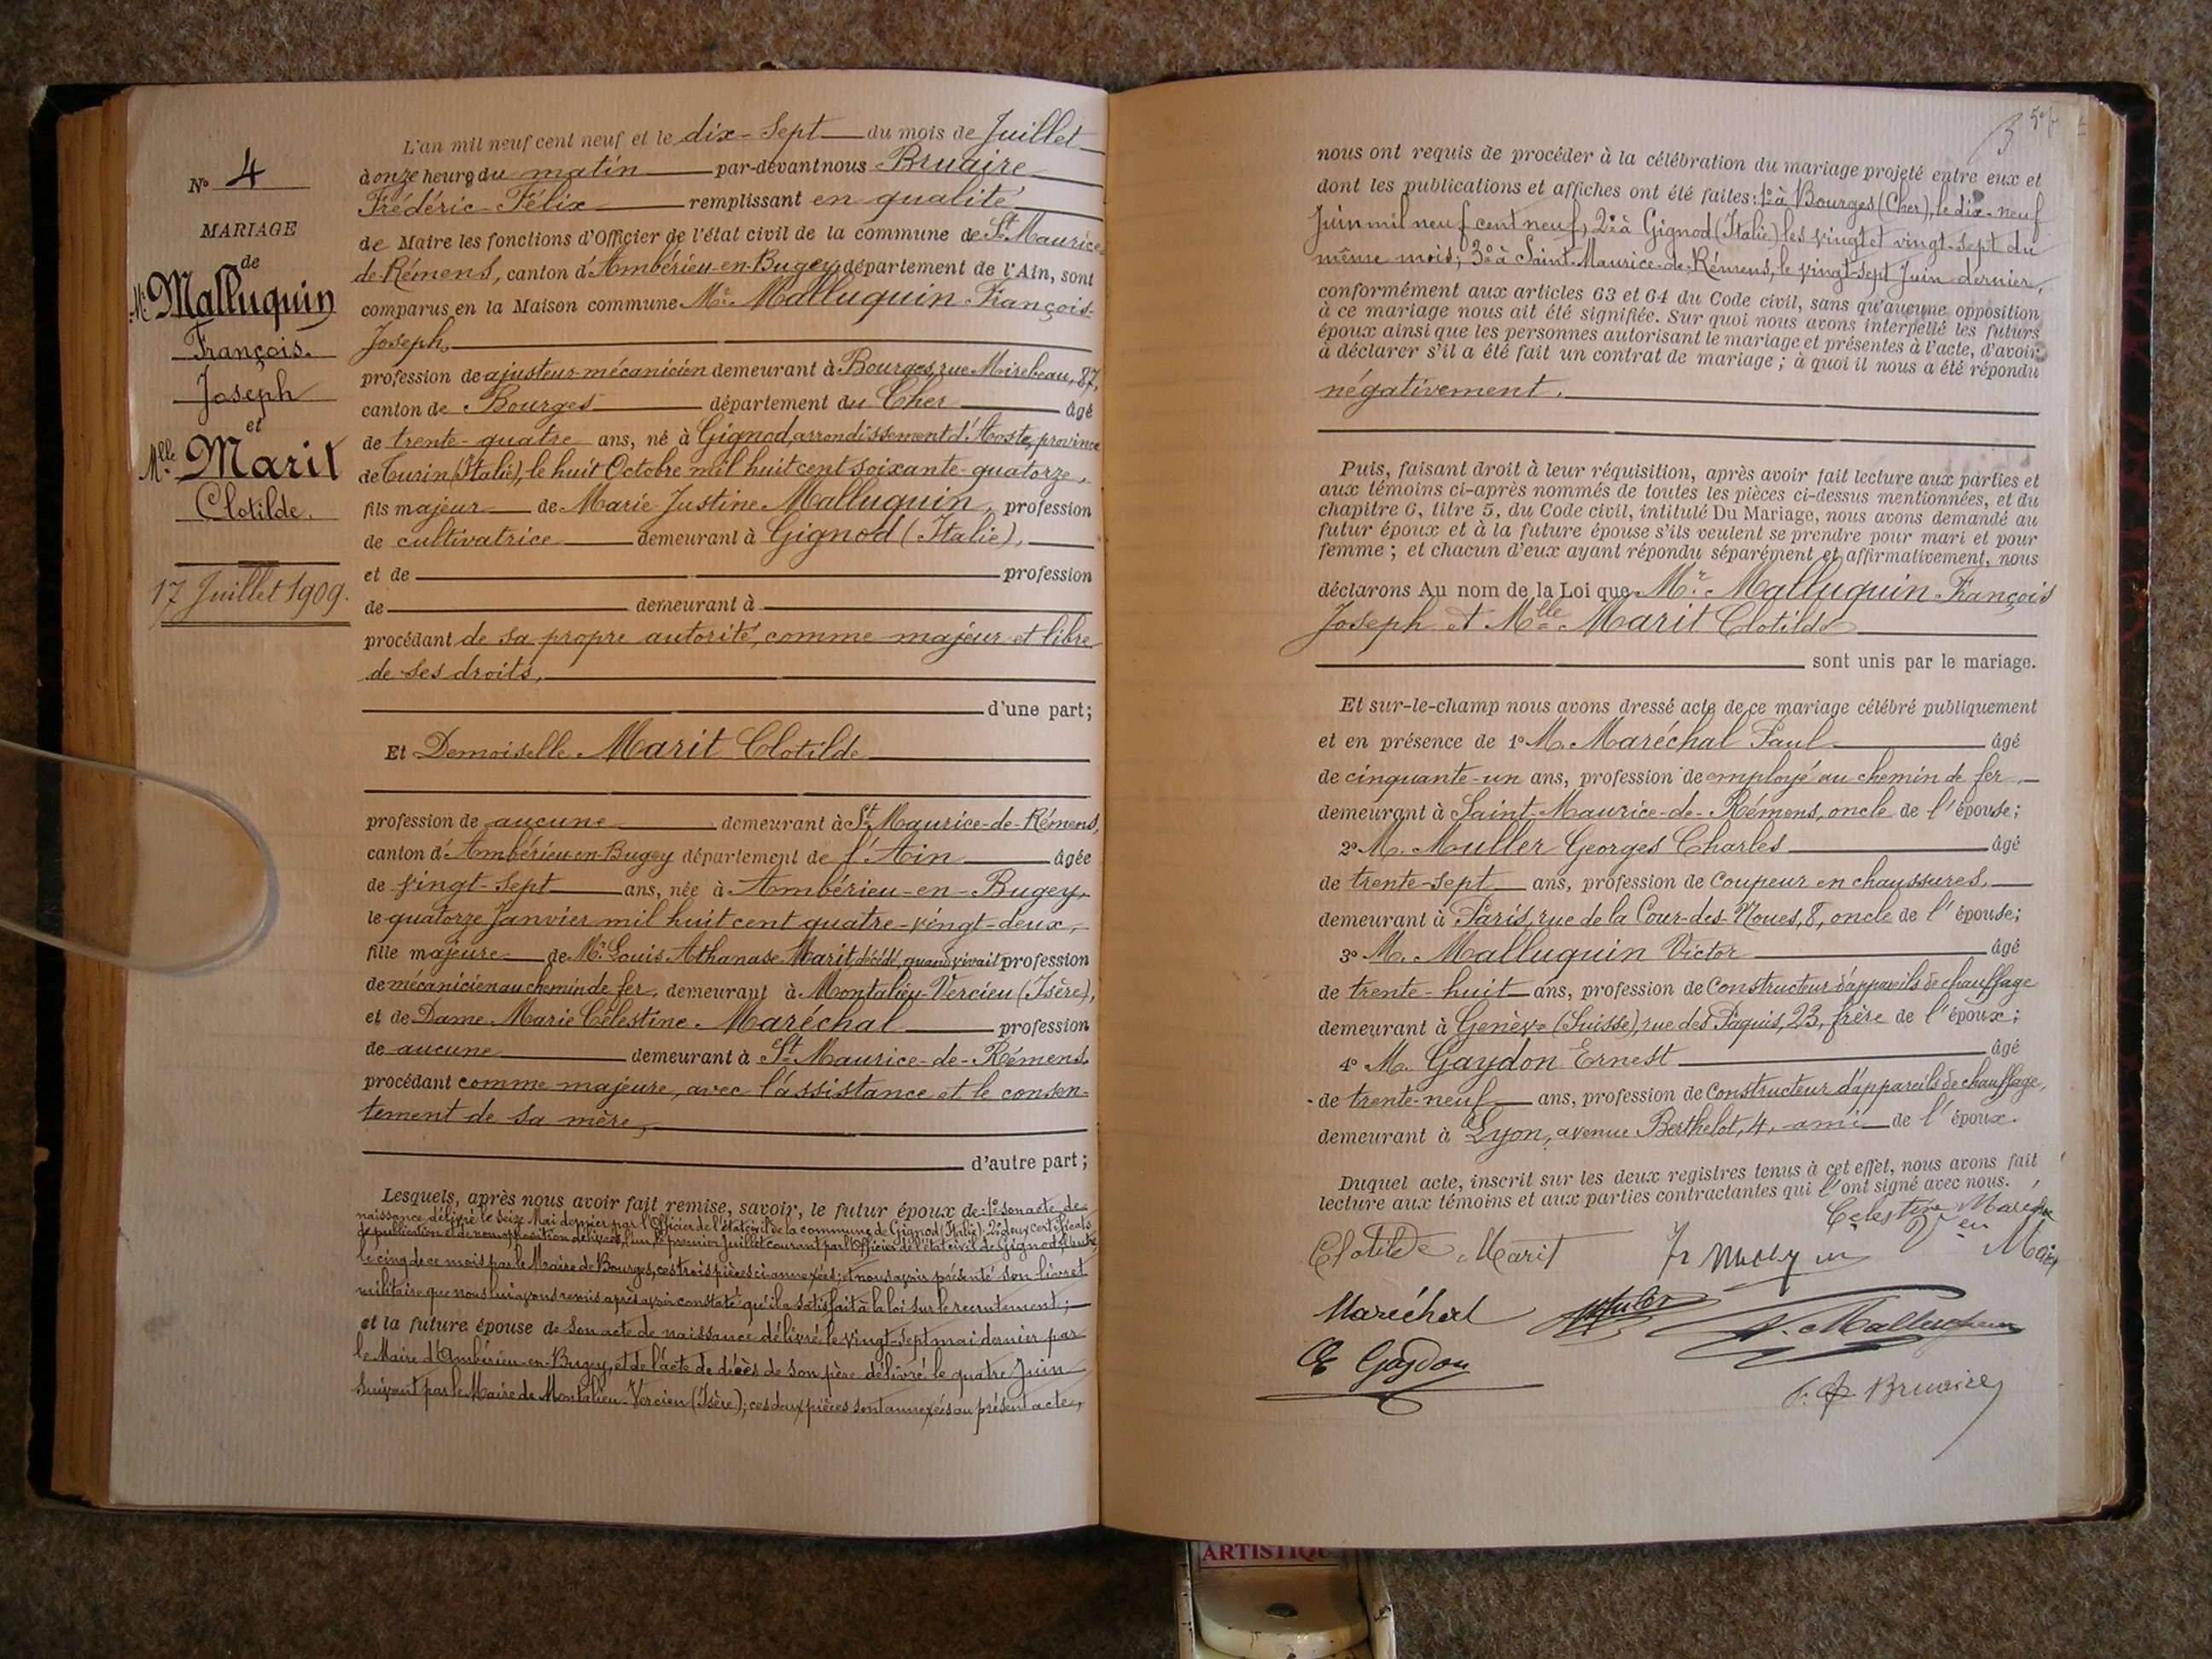 N° 4
MARIAGE
de
Mr. Malluquin
François
Joseph
et
Mlle Marit
Clotilde.
17 Juillet 1909.
L'an mil neuf cent neuf et le dix-sept du mois de Juillet
à onze heures du matin par-devant nous Bruaire
Frédéric-Félix remplissant en qualité
de Maire les fonctions d'Officier de l'état civil de la commune de St Maurice-
de-Rémens, canton d'Ambérieu-en-Bugey, département de l'Ain, sont
comparus en la Maison commune Mr. Malluquin François-
Joseph,
profession de ajusteur-mécanicien demeurant à Bourges, rue Mirebeau, 87,
canton de Bourges département du Cher âgé
de trente-quatre ans, né à Gignod, arrondissement d'Aoste, province
de Turin (Italie), le huit Octobre mil huit cent soixante-quatorze,
fils majeur de Marie Justine Malluquin, profession
de cultivatrice demeurant à Gignod (Italie),
et de profession
de demeurant à
procédant de sa propre autorité, comme majeur et libre
de ses droits,
d'une part;
Et Demoiselle Marit Clotilde
profession de aucune demeurant à St Maurice-de-Rémens,
canton d'Ambérieu-en-Bugey département de l'Ain âgée
de vingt-sept ans, née à Ambérieu-en-Bugey,
le quatorze Janvier mil huit cent quatre-vingt-deux,
fille majeure de Mr. Louis Athanase Marit, décédé, quand vivait profession
de mécanicien au chemin de fer, demeurant à Montalieu-Vercieu (Isère),
et de Dame Marie Célestine Maréchal profession
de aucune demeurant à St Maurice-de-Rémens.
procédant comme majeure, avec l'assistance et le consen-
tement de sa mère,
d'autre part;
Lesquels, après nous avoir fait remise, savoir, le futur époux de: 1° son acte de
naissance délivré le seize Mai dernier par l'Officier de l'état civil de la commune de Gignod (Italie); 2° deux certificats
de publication et de non opposition délivrés, l'un le premier Juillet courant par l'Officier de l'état civil de Gignod, l'autre
le cinq de ce mois par le Maire de Bourges, ces trois pièces ci-annexées; et nous avoir présenté son livret
militaire que nous lui avons remis après avoir constaté qu'il a satisfait à la loi sur le recrutement;
et la future épouse de son acte de naissance délivré le vingt-sept mai dernier par
le Maire d'Ambérieu-en-Bugey, et de l'acte de décès de son père délivré le quatre Juin
suivant par le Maire de Montalieu-Vercieu (Isère); ces deux pièces sont annexées au présent acte,
nous ont requis de procéder à la célébration du mariage projeté entre eux et
dont les publications et affiches ont été faites: 1° à Bourges (Cher), le dix-neuf
Juin mil neuf cent neuf; 2° à Gignod (Italie) les vingt et vingt-sept du
même mois; 3° à Saint-Maurice-de-Rémens, le vingt-sept Juin dernier,
conformément aux articles 63 et 64 du Code civil, sans qu'aucune opposition
à ce mariage nous ait été signifiée. Sur quoi nous avons interpellé les futurs
époux ainsi que les personnes autorisant le mariage et présentes à l'acte, d'avoir
à déclarer s'il a été fait un contrat de mariage; à quoi il nous a été répondu
négativement.
Puis, faisant droit à leur réquisition, après avoir fait lecture aux parties et
aux témoins ci-après nommés de toutes les pièces ci-dessus mentionnées, et du
chapitre 6, titre 5, du Code civil, intitulé Du Mariage, nous avons demandé au
futur époux et à la future épouse s'ils veulent se prendre pour mari et pour
femme; et chacun d'eux ayant répondu séparément et affirmativement, nous
déclarons Au nom de la Loi que Mr. Malluquin François
Joseph et Mlle Marit Clotilde
sont unis par le mariage.
Et sur-le-champ nous avons dressé acte de ce mariage célébré publiquement
et en présence de 1° M. Maréchal Paul âgé
de cinquante-un ans, profession de employé au chemin de fer
demeurant à Saint-Maurice-de-Rémens, oncle de l'épouse;
2° M. Muller Georges Charles âgé
de trente-sept ans, profession de Coupeur en chaussures,
demeurant à Paris, rue de la Cour-des-Noues, 8, oncle de l'épouse;
3° M. Malluquin Victor âgé
de trente-huit ans, profession de Constructeur d'appareils de chauffage
demeurant à Genève (Suisse), rue des Pâquis, 23, frère de l'époux;
4° M. Gaydon Ernest âgé
de trente-neuf ans, profession de Constructeur d'appareils de chauffage,
demeurant à Lyon, avenue Berthelot, 4, ami de l'époux.
Duquel acte, inscrit sur les deux registres tenus à cet effet, nous avons fait
lecture aux témoins et aux parties contractantes qui l'ont signé avec nous.
Celestine Marecha
Clotilde Marit
Maréchal
V. Malluquin
E Gaydon
F. F. Bruaire
ARTISTIQU